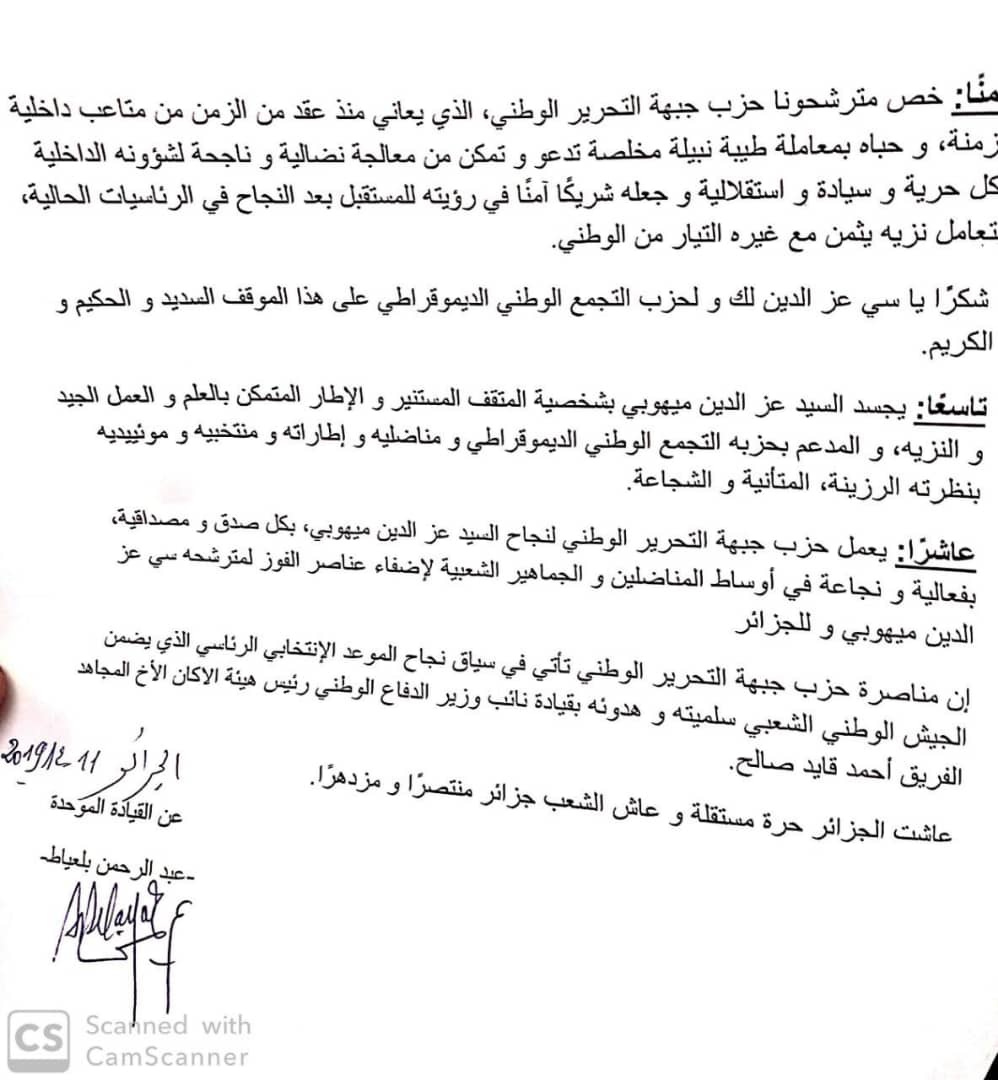 منًا: خص مترشحونا حزب جبهة التحرير الوطني، الذي يعاني منذ عقد من الزمن من متاعب داخلية
زمنة، و حباه بمعاملة طيبة نبيلة مخلصة تدعو و تمكن من معالجة نضالية و ناجحة لشؤونه الداخلية
كل حرية و سيادة و استقلالية و جعله شريكًا آمنًا في رؤيته للمستقبل بعد النجاح في الرئاسيات الحالية،
تعامل نزيه يثمن مع غيره التيار من الوطني.
شكرًا يا سي عز الدين لك و لحزب التجمع الوطني الديموقراطي على هذا الموقف السديد و الحكيم و
الكريم.
تاسعًا: يجسد السيد عز الدين ميهوبي بشخصية المثقف المستنير و الإطار المتمكن بالعلم و العمل الجيد
و النزيه، و المدعم بحزبه التجمع الوطني الديموقراطي و مناضليه و إطاراته و منتخبيه و موئييديه
بنظرته الرزينة، المتأنية و الشجاعة.
عاشرًا: يعمل حزب جبهة التحرير الوطني لنجاح السيد عز الدين ميهوبي، بكل صدق و مصداقية،
بفعالية و نجاعة في أوساط المناضلين و الجماهير الشعبية لإضفاء عناصر الفوز لمترشحه سي عز
الدين ميهوبي و للجزائر
إن مناصرة حزب جبهة التحرير الوطني تأتي في سياق نجاح الموعد الإنتخابي الرئاسي الذي يضمن
الجيش الوطني الشعبي سلميته و هدوئه بقيادة نائب وزير الدفاع الوطني رئيس هيئة الاكان الأخ المجاهد
الفريق أحمد قايد صالح.
عاشت الجزائر حرة مستقلة و عاش الشعب جزائر منتصرًا و مزدهرًا.
الجزائر 11-12-2019
عن القيادة الموحدة
-عبد الرحمن بلعياط-
CS Scanned with
CamScanner